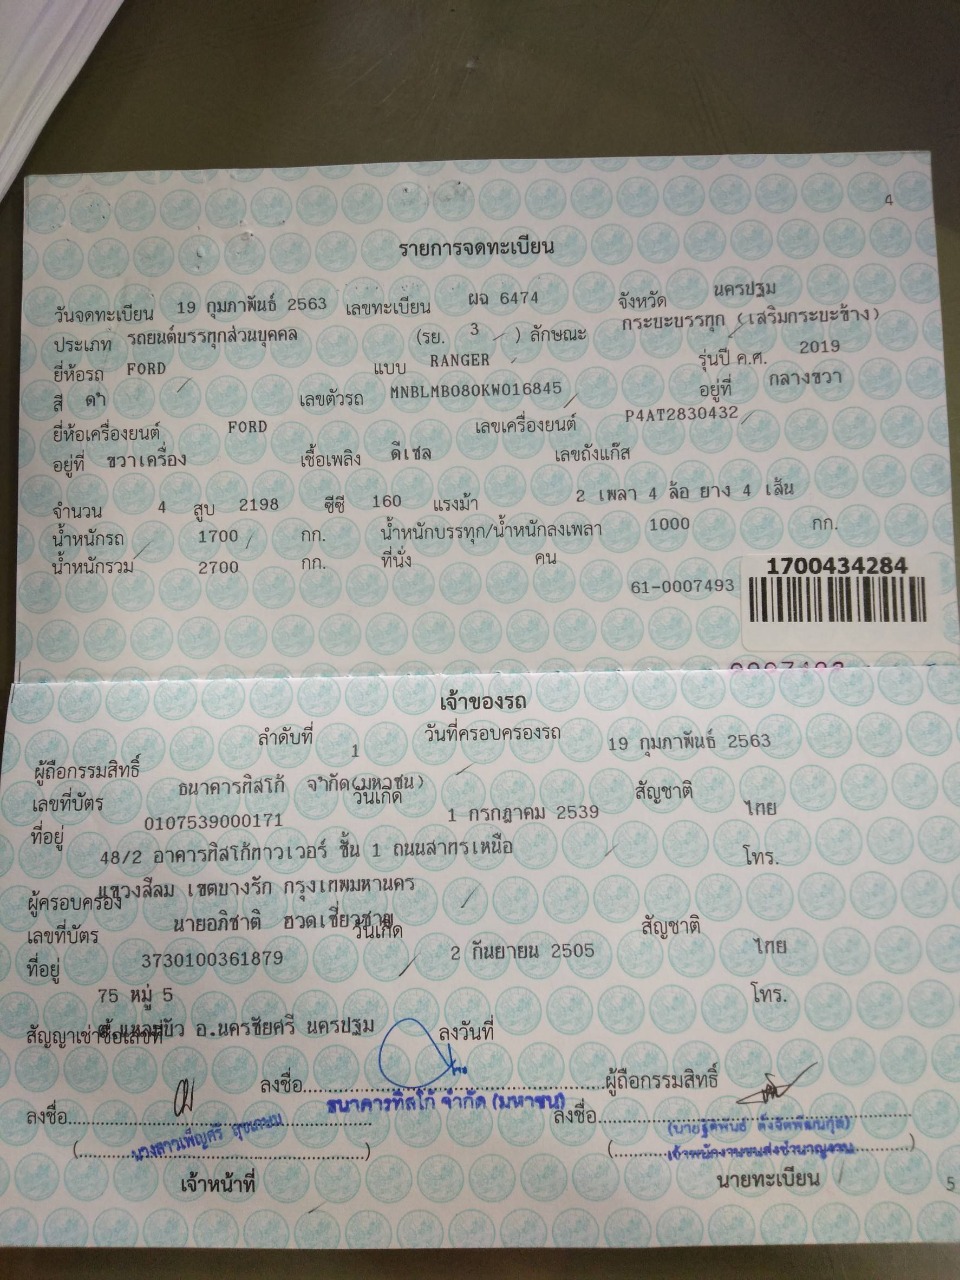 4
รายการจดทะเบียน
วันจดทะเบียน 19 กุมภาพันธ์ 2563 เลขทะเบียน ผฉ 6474 จังหวัด นครปฐม
ประเภท รถยนต์บรรทุกส่วนบุคคล (รย. 3 ) ลักษณะ กระบะบรรทุก (เสริมกระบะข้าง)
ยี่ห้อรถ FORD แบบ RANGER รุ่นปี ค.ศ. 2019
สี ดำ เลขตัวรถ MNBLMB080KW016845 อยู่ที่ กลางขวา
ยี่ห้อเครื่องยนต์ FORD เลขเครื่องยนต์ P4AT2830432
อยู่ที่ ขวาเครื่อง เชื้อเพลิง ดีเซล เลขถังแก๊ส
จำนวน 4 สูบ 2198 ซีซี 160 แรงม้า 2 เพลา 4 ล้อ ยาง 4 เส้น
น้ำหนักรถ 1700 กก. น้ำหนักบรรทุก/น้ำหนักลงเพลา 1000 กก.
น้ำหนักรวม 2700 กก. ที่นั่ง คน
1700434284
61-0007493
เจ้าของรถ
ลำดับที่ 1 วันที่ครอบครองรถ 19 กุมภาพันธ์ 2563
ผู้ถือกรรมสิทธิ์ ธนาคารทิสโก้ จำกัด(มหาชน)
เลขที่บัตร 0107539000171 วันเกิด 1 กรกฎาคม 2539 สัญชาติ ไทย
ที่อยู่ 48/2 อาคารทิสโก้ทาวเวอร์ ชั้น 1 ถนนสาทรเหนือ โทร.
แขวงสีลม เขตบางรัก กรุงเทพมหานคร
ผู้ครอบครอง นายอภิชาติ ฮวดเชี่ยวชาญ
เลขที่บัตร 3730100361879 วันเกิด 2 กันยายน 2505 สัญชาติ ไทย
ที่อยู่ 75 หมู่ 5 โทร.
ต.แหลมบัว อ.นครชัยศรี นครปฐม
สัญญาเช่าซื้อเลขที่ ลงวันที่
ลงชื่อ ผู้ถือกรรมสิทธิ์
ธนาคารทิสโก้ จำกัด (มหาชน)
ลงชื่อ ลงชื่อ
เจ้าพนักงานขนส่งชำนาญงาน
เจ้าหน้าที่ นายทะเบียน
5